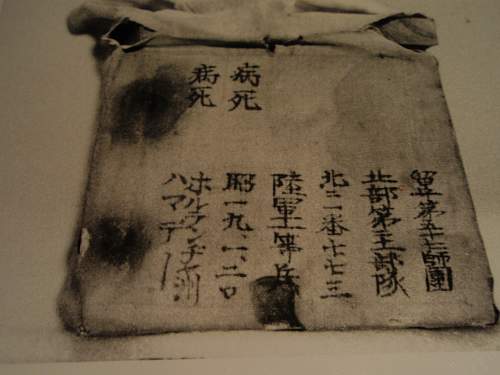 留守第五十七師團
北部第 部隊
北二 番 七三
陸軍上等兵
病死
昭一九、一、二〇
病死
ホルランヂヤ洲
ハマデ